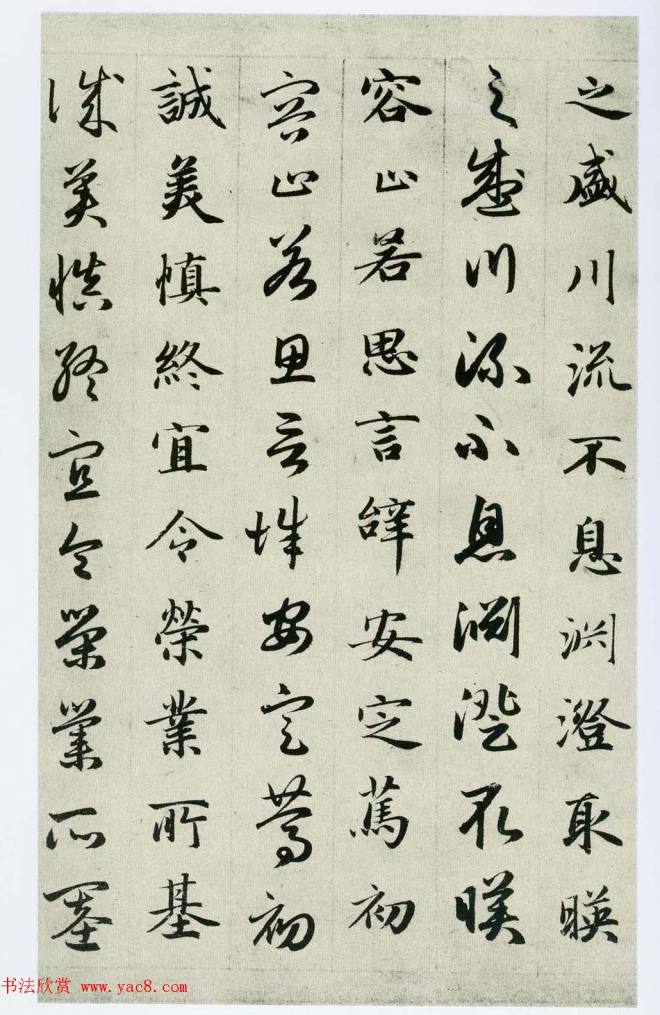 之盛川流不息渊澄取暎
之盛川流不息渊澄取暎
容止若思言辞安定笃初
容止若思言辞安定笃初
誠美慎終宜令榮業所基
誠美慎終宜令榮業所基
书法欣赏 www.yac8.com